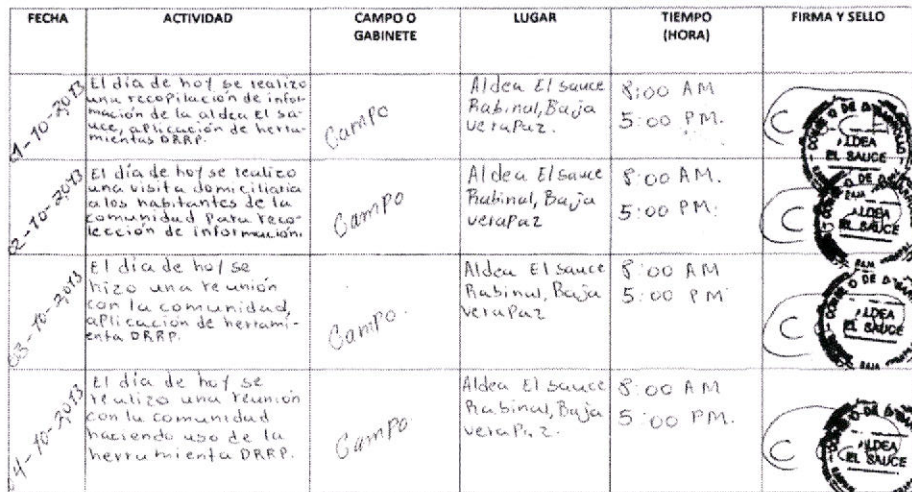 FECHA ACTIVIDAD CAMPO O GABINETE LUGAR TIEMPO (HORA) FIRMA Y SELLO
01-10-2013
El día de hoy se realizo
una recopilación de infor-
mación de la aldea El sa-
uce, aplicación de herra-
mientas DRRP.
Campo
Aldea El sauce
Rabinal, Baja
verapaz.
8:00 AM
5:00 PM.
ALDEA
EL SAUCE
02-10-2013
El día de hoy se realizo
una visita domiciliaria
a los habitantes de la
comunidad Para reco-
lección de información.
Campo
Aldea El sauce
Rabinal, Baja
verapaz
8:00 AM.
5:00 PM.
ALDEA
EL SAUCE
03-10-2013
El día de hoy se
hizo una reunión
con la comunidad,
aplicación de herrami-
enta DRRP.
Campo.
Aldea El sauce
Rabinal, Baja
verapaz
8:00 AM
5:00 PM
ALDEA
EL SAUCE
BAJA
04-10-2013
El día de hoy se
realizo una reunión
con la comunidad
haciendo uso de la
herramienta DRRP.
Campo
Aldea El sauce
Rabinal, Baja
verapaz.
8:00 AM
5:00 PM.
ALDEA
EL SAUCE